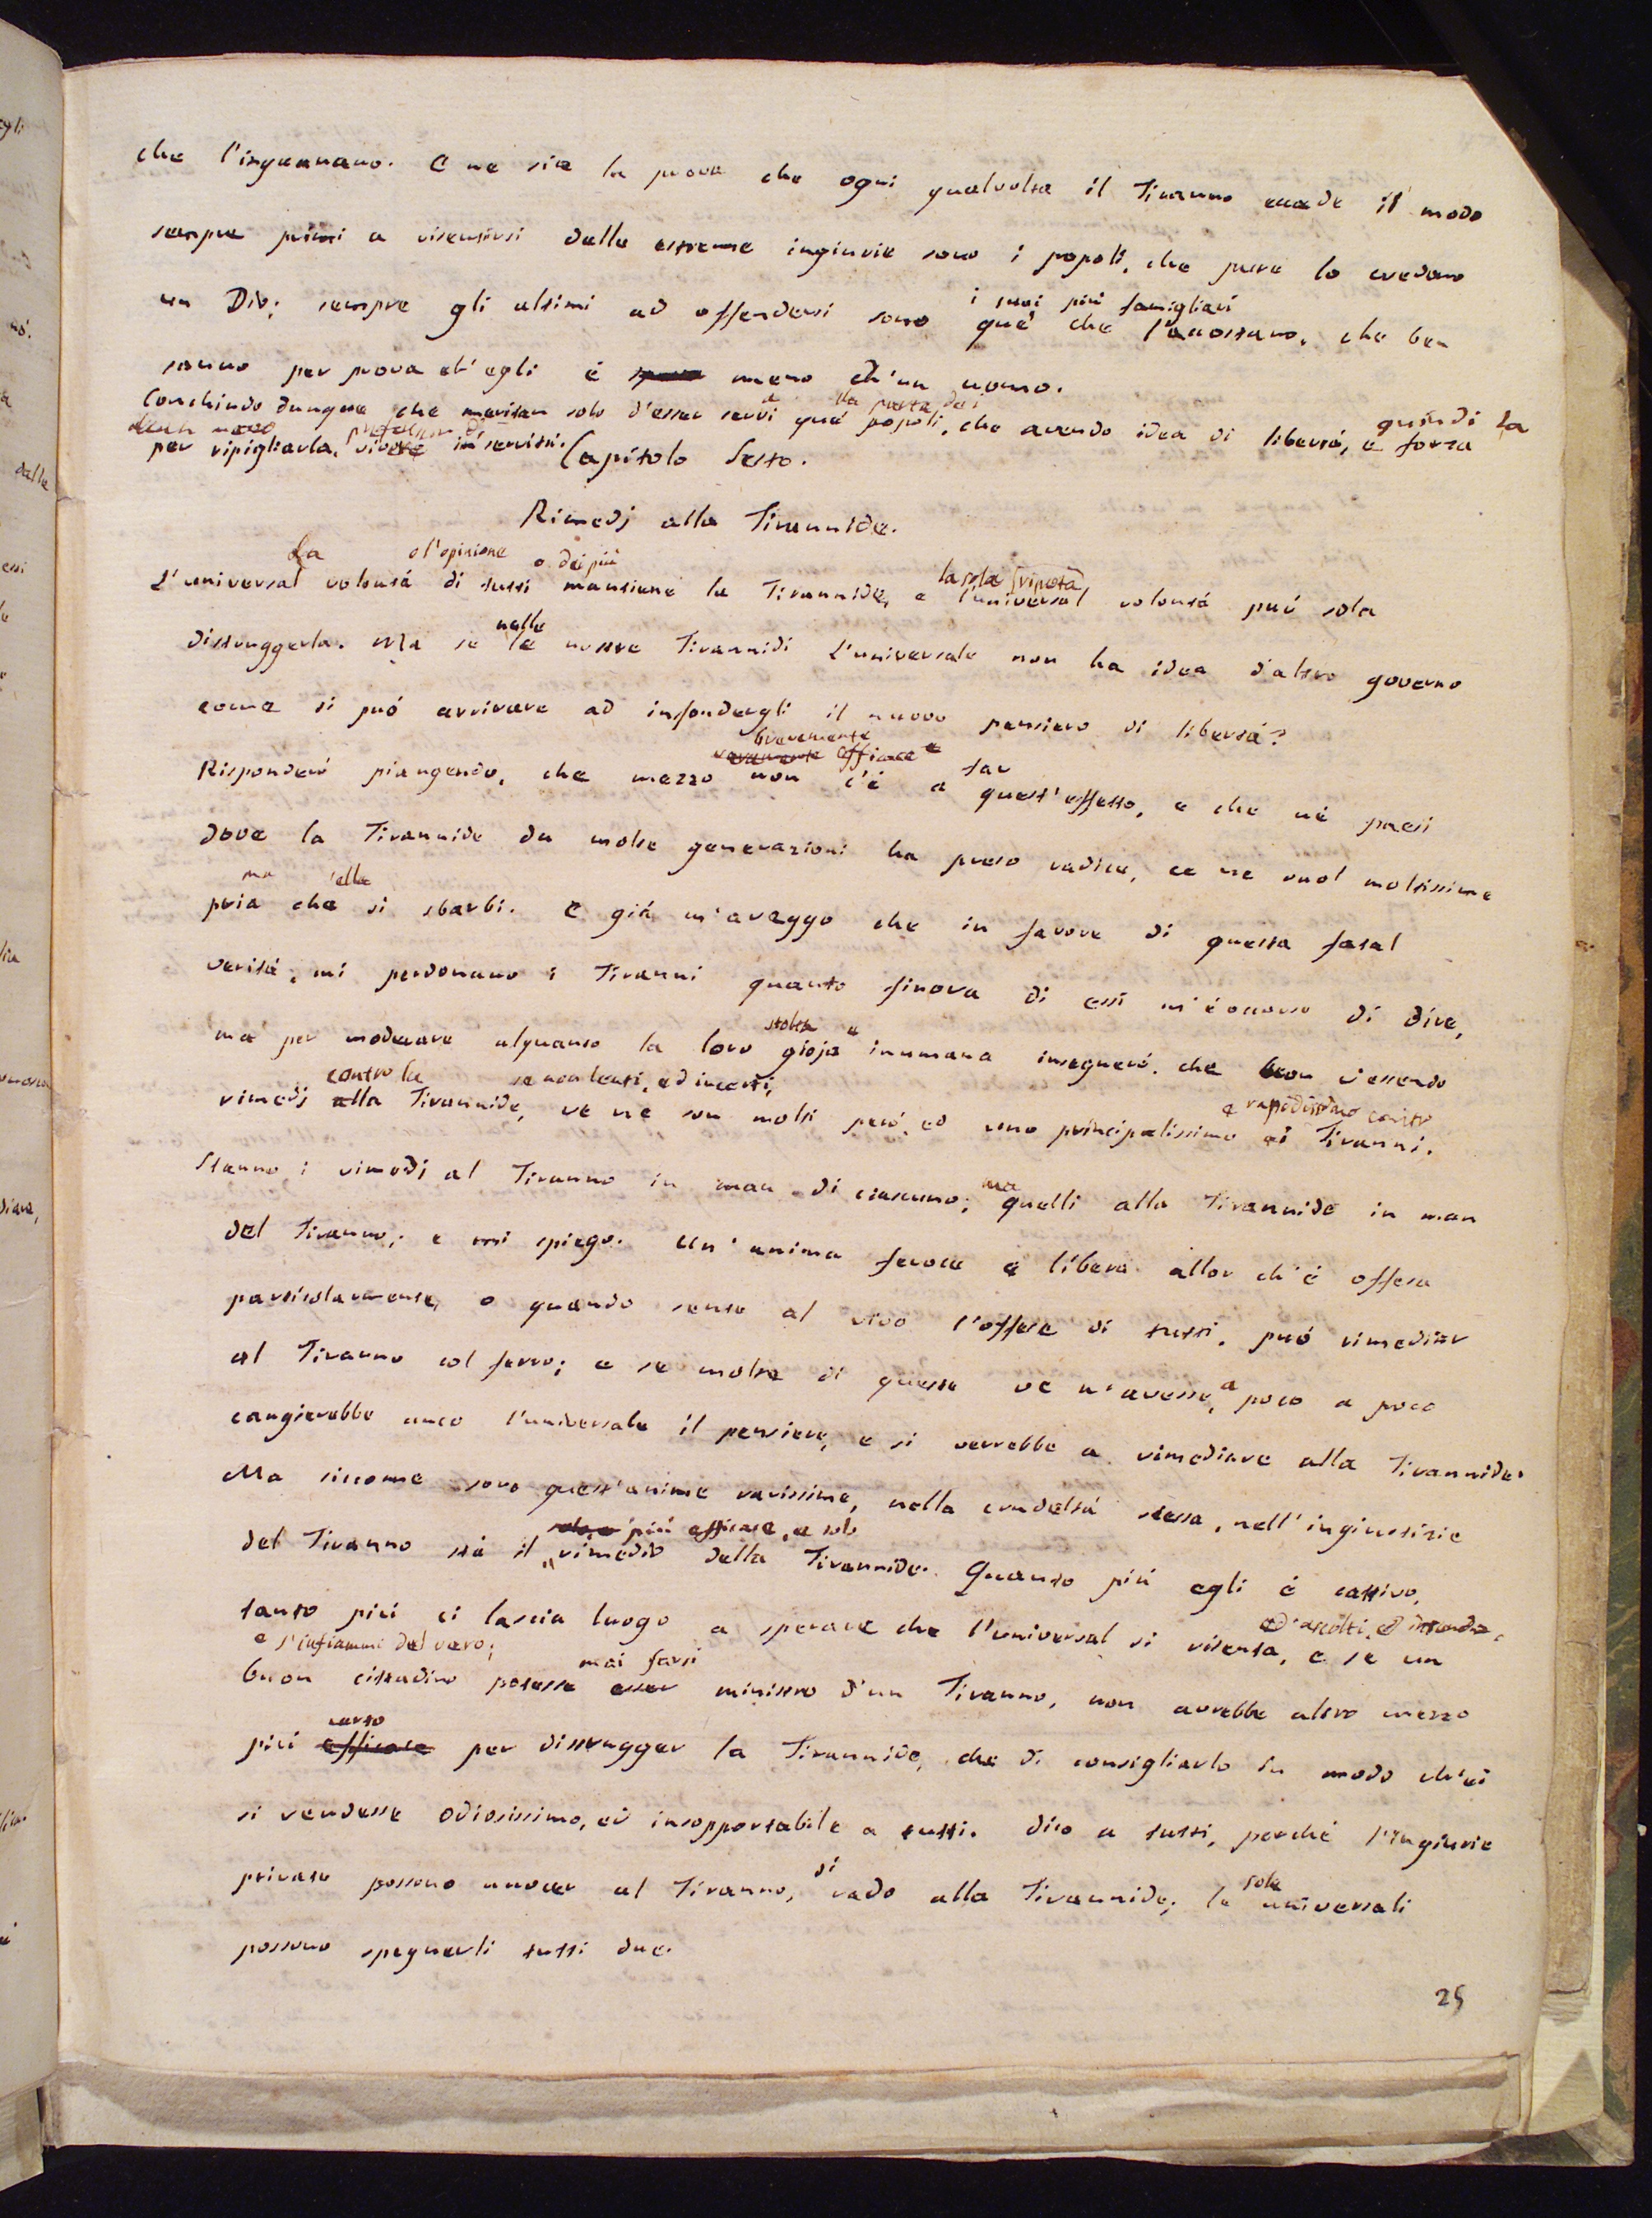 che l'ingannano. E ne sia la prova che ogni qualvolta il Tiranno eccede il modo
sempre primi a risentirsi delle estreme ingiurie sono i popoli, che pure lo credono
i suoi più famigliari
un Dio; sempre gli ultimi ad offendersi sono que' che l'accostano, che ben
sanno per prova ch'egli è meno ch'un uomo.
Conchiudo dunque che meritan solo d'esser servi que' popoli, che avendo idea di libertà, e forza
quindi la
per ripigliarla, vivere in servitù.
Capitolo Sesto.
Rimedj alla Tirannide.
La o l'opinione o dei più
L'universal volontà di tutti mantiene la Tirannide, e l'universal volontà può sola
la sola
nelle
distruggerla. Ma se le nostre Tirannidi l'universale non ha idea d'altro governo
come si può arrivare ad infondergli il nuovo pensiero di libertà?
brevemente
veramente efficace e far
Risponderò piangendo, che mezzo non c'è a quest'effetto, e che ne' paesi
dove la Tirannide da molte generazioni ha preso radice, ce ne vuol moltissime
'ella
pria che si sbarbi. E già m'aveggo che in favore di questa fatal
verità, mi perdonano i Tiranni quanto finora di essi m'è occorso di dire,
stolta e
ma per moderare alquanto la loro gioja inumana insegnerò, che non v'essendo
contro la se non lenti, ed incerti,
rimedj alla Tirannide, ve ne son molti però, ed uno principalissimo ai Tiranni.
e rapidissimo contro
Stanno i rimedj al Tiranno in man di ciascuno; quelli alla Tirannide in man
ma
del Tiranno; e mi spiego. Un'anima feroce e libera allor ch'è offesa
particolarmente, o quando sente al vivo l'offese di tutti, può rimediar
al Tiranno col ferro; e se molte di queste ve n'avesse, a poco a poco
cangierebbe anco l'universale il pensiere, e si verrebbe a rimediare alla Tirannide.
Ma siccome sono quest'anime rarissime, nella crudeltà stessa, nell'ingiustizie
più efficace, e solo
del Tiranno sta il rimedio della Tirannide. Quanto più egli è cattivo,
tanto più ci lascia luogo a sperare che l'universal si risenta, e se un
ed ascolti, ed intenda,
e s'infiammi del vero;
mai farsi
buon cittadino potesse esser ministro d'un Tiranno, non avrebbe altro mezzo
certo
più efficace per distrugger la Tirannide, che di consigliarlo in modo ch'ei
si rendesse odiosissimo, ed insopportabile a tutti. dico a tutti, perchè l'ingiurie
private possono nuocer al Tiranno, di rado alla Tirannide; le universali
sole
possono spegnerli tutti due.
25